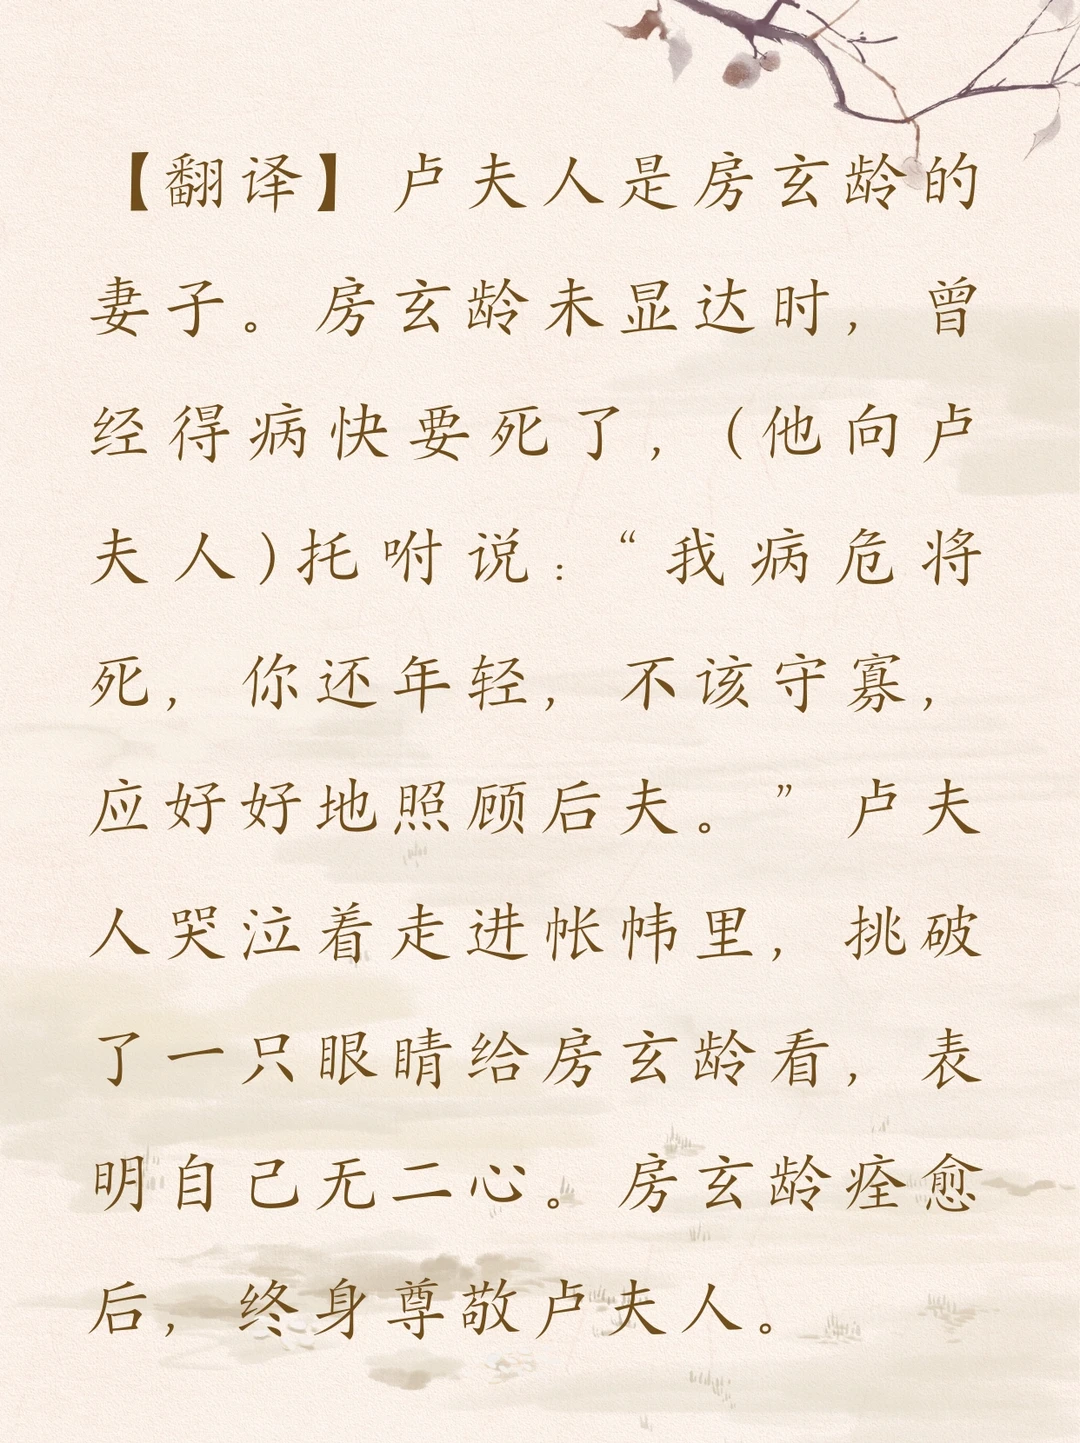 【翻译】卢夫人是房玄龄的
妻子。房玄龄未显达时，曾
经得病快要死了，(他向卢
夫人)托咐说：“我病危将
死，你还年轻，不该守寡，
应好好地照顾后夫。”卢夫
人哭泣着走进帐帏里，挑破
了一只眼睛给房玄龄看，表
明自己无二心。房玄龄痊愈
后，终身尊敬卢夫人。